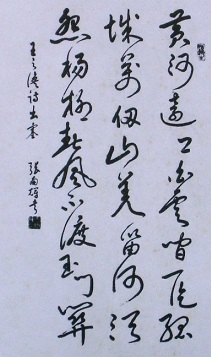 黄河远上白云间一片孤
城万仞山羌笛何须
怨杨柳春风不渡玉门关
王之涣诗出塞
张
书